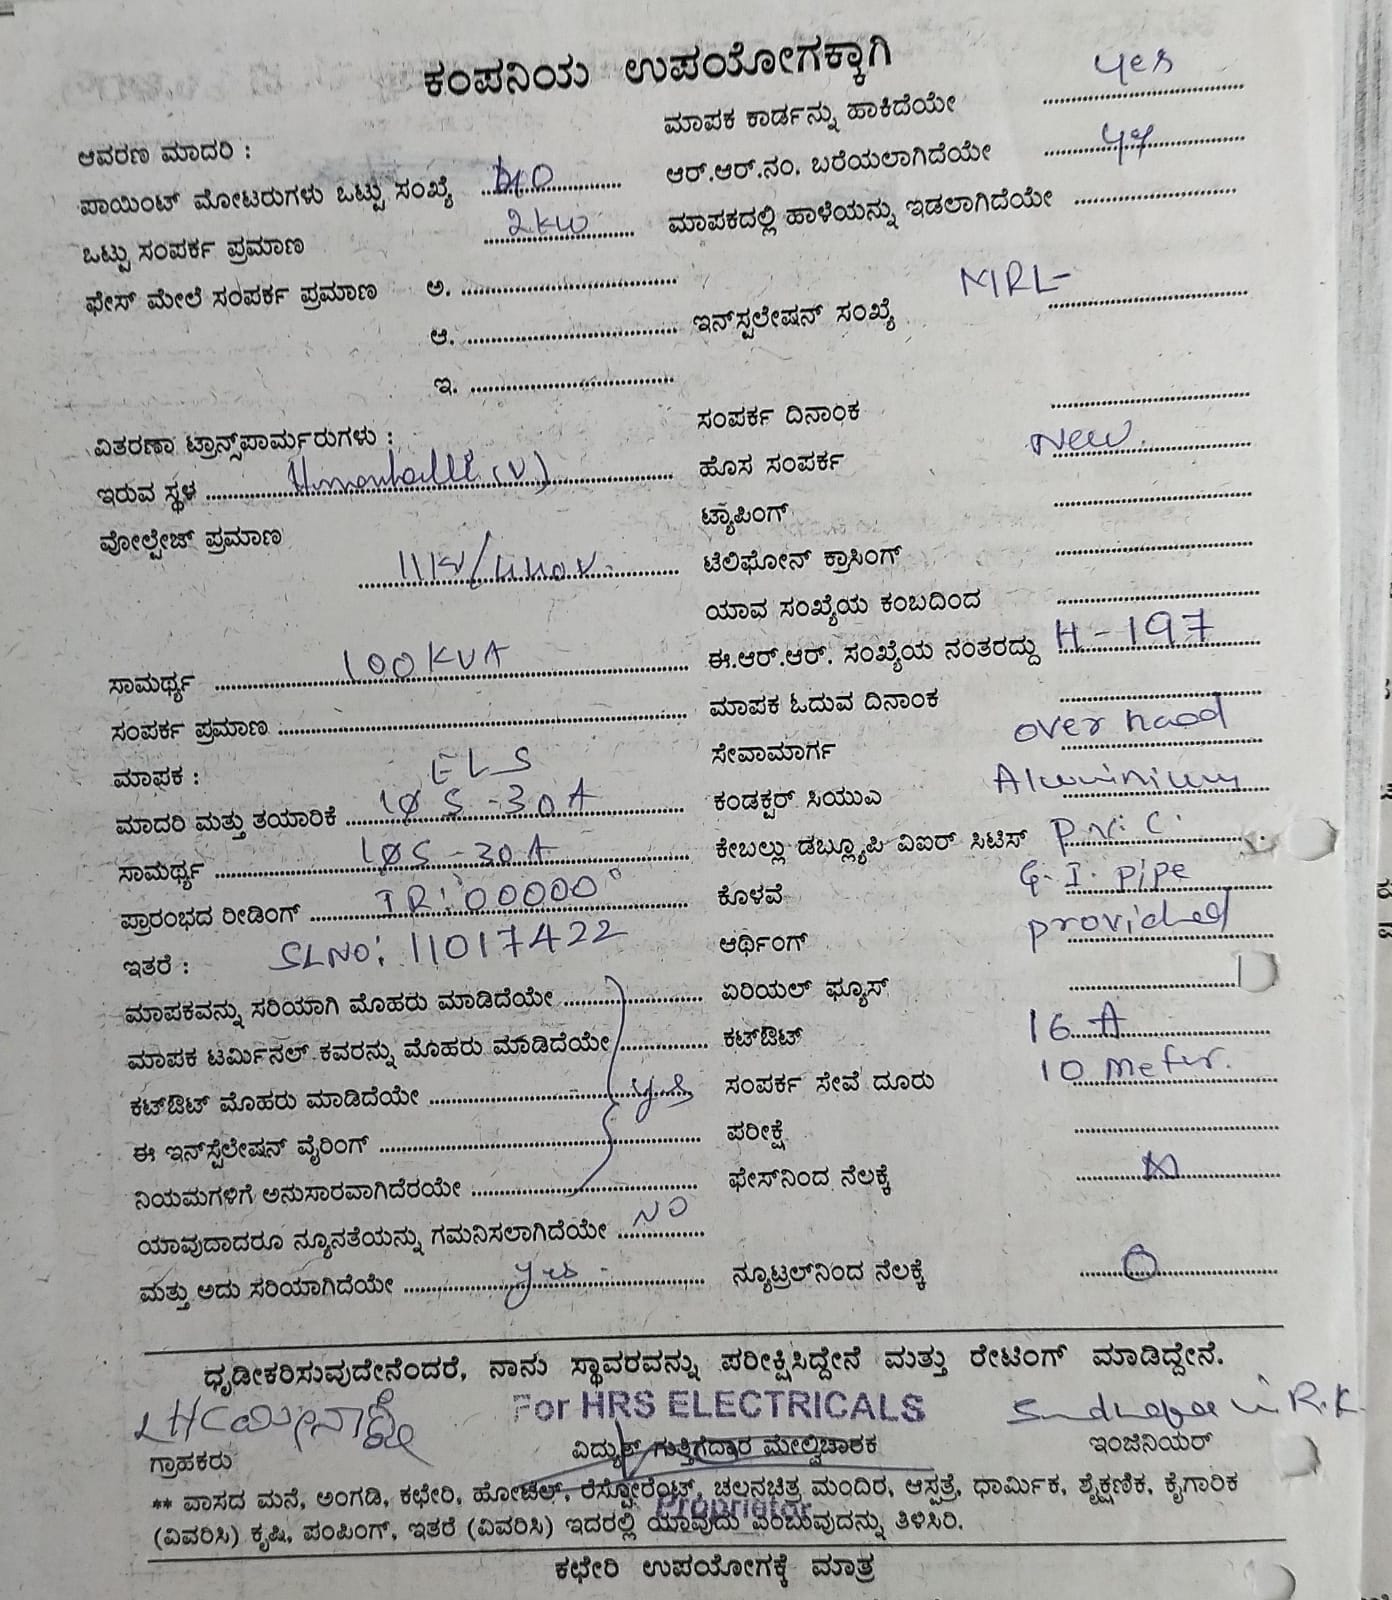 ಕಂಪನಿಯ ಉಪಯೋಗಕ್ಕಾಗಿ
ಮಾಪಕ ಕಾರ್ಡನ್ನು ಹಾಕಿದೆಯೇ yes
ಆವರಣ ಮಾದರಿ :
ಆರ್.ಆರ್.ನಂ. ಬರೆಯಲಾಗಿದೆಯೇ
ಪಾಯಿಂಟ್ ಮೋಟರುಗಳು ಒಟ್ಟು ಸಂಖ್ಯೆ
ಮಾಪಕದಲ್ಲಿ ಹಾಳೆಯನ್ನು ಇಡಲಾಗಿದೆಯೇ
ಒಟ್ಟು ಸಂಪರ್ಕ ಪ್ರಮಾಣ 2kw
ಫೇಸ್ ಮೇಲೆ ಸಂಪರ್ಕ ಪ್ರಮಾಣ ಅ.
ಆ. ಇನ್‌ಸ್ಟಲೇಷನ್ ಸಂಖ್ಯೆ
ಇ.
ಸಂಪರ್ಕ ದಿನಾಂಕ
ವಿತರಣಾ ಟ್ರಾನ್ಸ್‌ಪಾರ್ಮರುಗಳು :
ಇರುವ ಸ್ಥಳ (V) ಹೊಸ ಸಂಪರ್ಕ New
ವೋಲ್ಟೇಜ್ ಪ್ರಮಾಣ ಟ್ಯಾಪಿಂಗ್
ಟೆಲಿಫೋನ್ ಕ್ರಾಸಿಂಗ್
ಯಾವ ಸಂಖ್ಯೆಯ ಕಂಬದಿಂದ
ಸಾಮರ್ಥ್ಯ 100 KVA ಈ.ಆರ್.ಆರ್. ಸಂಖ್ಯೆಯ ನಂತರದ್ದು H-197
ಸಂಪರ್ಕ ಪ್ರಮಾಣ ಮಾಪಕ ಓದುವ ದಿನಾಂಕ
ಮಾಫಕ : ELS ಸೇವಾಮಾರ್ಗ over head
ಮಾದರಿ ಮತ್ತು ತಯಾರಿಕೆ 1Ø 5-30A ಕಂಡಕ್ಟರ್ ಸಿಯುಎ Aluminium
ಸಾಮರ್ಥ್ಯ 1Ø5-30A ಕೇಬಲ್ಲು ಡಬ್ಲ್ಯೂಪಿ ವಿಐರ್ ಸಿಟಿಸ್ P.V.C.
ಪ್ರಾರಂಭದ ರೀಡಿಂಗ್ IR: 00000 ಕೊಳವೆ G.I. pipe
ಇತರೆ : SLNO: 11017422 ಆರ್ಥಿಂಗ್ provided
ಮಾಪಕವನ್ನು ಸರಿಯಾಗಿ ಮೊಹರು ಮಾಡಿದೆಯೇ ಏರಿಯಲ್ ಫ್ಯೂಸ್
ಮಾಪಕ ಟರ್ಮಿನಲ್ ಕವರನ್ನು ಮೊಹರು ಮಾಡಿದೆಯೇ ಕಟ್‌ಔಟ್ 16 A
ಕಟ್‌ಔಟ್ ಮೊಹರು ಮಾಡಿದೆಯೇ yes ಸಂಪರ್ಕ ಸೇವೆ ದೂರು 10 meter.
ಈ ಇನ್‌ಸ್ಟೆಲೇಷನ್ ವೈರಿಂಗ್ ಪರೀಕ್ಷೆ
ನಿಯಮಗಳಿಗೆ ಅನುಸಾರವಾಗಿದೆರಯೇ ಫೇಸ್‌ನಿಂದ ನೆಲಕ್ಕೆ
ಯಾವುದಾದರೂ ನ್ಯೂನತೆಯನ್ನು ಗಮನಿಸಲಾಗಿದೆಯೇ NO
ಮತ್ತು ಅದು ಸರಿಯಾಗಿದೆಯೇ yes ನ್ಯೂಟ್ರಲ್‌ನಿಂದ ನೆಲಕ್ಕೆ
ಧೃಡೀಕರಿಸುವುದೇನೆಂದರೆ, ನಾನು ಸ್ಥಾವರವನ್ನು ಪರೀಕ್ಷಿಸಿದ್ದೇನೆ ಮತ್ತು ರೇಟಿಂಗ್ ಮಾಡಿದ್ದೇನೆ.
For HRS ELECTRICALS
ಗ್ರಾಹಕರು ವಿದ್ಯುತ್ ಗುತ್ತಿಗೆದಾರ ಮೇಲ್ವಿಚಾರಕ ಇಂಜಿನಿಯರ್
** ವಾಸದ ಮನೆ, ಅಂಗಡಿ, ಕಛೇರಿ, ಹೋಟೆಲ್, ರೆಸ್ಟೋರೆಂಟ್, ಚಲನಚಿತ್ರ ಮಂದಿರ, ಆಸ್ಪತ್ರೆ, ಧಾರ್ಮಿಕ, ಶೈಕ್ಷಣಿಕ, ಕೈಗಾರಿಕ
Proprietor
(ವಿವರಿಸಿ) ಕೃಷಿ, ಪಂಪಿಂಗ್, ಇತರೆ (ವಿವರಿಸಿ) ಇದರಲ್ಲಿ ಯಾವುದು ಎಂಬುವುದನ್ನು ತಿಳಿಸಿರಿ.
ಕಛೇರಿ ಉಪಯೋಗಕ್ಕೆ ಮಾತ್ರ